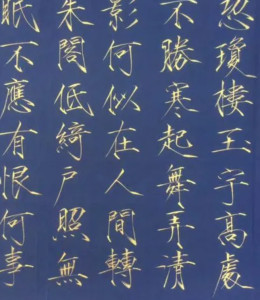 恐瓊樓玉宇高處
不勝寒起舞弄清
影何似在人間轉
朱閣低綺戶照無
眠不應有恨何事